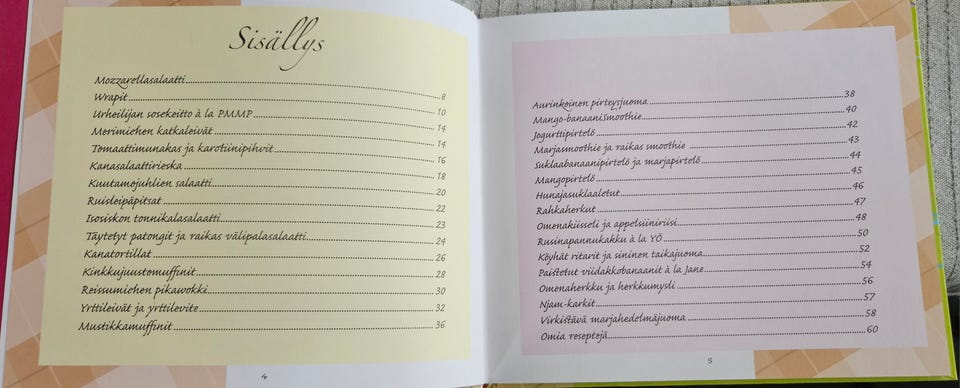 Sisällys
Mozzarellasalaatti........8
Wrapit........10
Urheilijan sosekeitto à la PMMP........14
Merimiehen katkaleivät........14
Temaattimunakas ja karotiinipihvit........16
Kanasalaattirieska........18
Kuutamojuhlien salaatti........20
Ruisleipäpitsat........22
Isosiskon tonnikalasalaatti........23
Täytetyt patongit ja raikas välipalasalaatti........24
Kanatortillat........26
Kinkkujuustomuffinit........28
Reissumiehen pikawokki........30
Yrttileivät ja yrttilevite........32
Mustikkamuffinit........36
4
Aurinkoinen pirteysjuoma........38
Mango-banaanismoothie........40
Jogurttipirtelö........42
Marjasmoothie ja raikas smoothie........43
Suklaabanaanipirtelö ja marjapirtelö........44
Mangopirtelö........45
Hunajasuklaaletut........46
Rahkaherkut........47
Omenakiisseli ja appelsiiniriisi........48
Rusinapannukakku à la YÖ........50
Köyhät ritarit ja sininen taikajuoma........52
Paistetut viidakkobanaanit à la Jane........54
Omenaherkku ja herkkumysli........56
Njam-karkit........57
Virkistävä marjahedelmäjuoma........58
Omia reseptejä........60
5